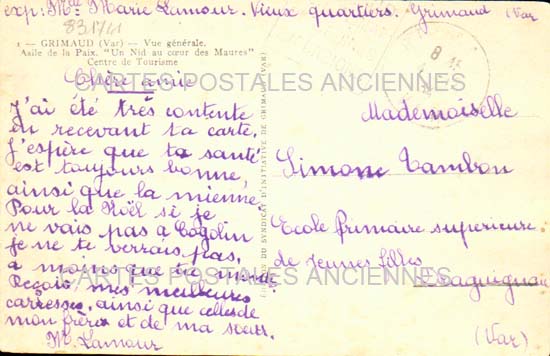 exp: Mlle Marie Lamour. Vieux quartiers. Grimaud (Var
83.1741
1 — GRIMAUD (Var) — Vue générale.
Asile de la Paix. "Un Nid au cœur des Maures"
Centre de Tourisme
Chère amie
J'ai été très contente
en recevant ta carte,
J'espère que ta santé
est toujours bonne,
ainsi que la mienne,
Pour la Noël si je
ne vais pas à Cogolin
je ne te verrais pas,
à moins que tu
Reçois mes meilleures
caresses, ainsi que celles de
mon frère et de ma sœur.
M. Lamour
DU SYNDICAT D'INITIATIVE DE GRIMAUD (VAR)
8
Mademoiselle
Simone Tambon
Ecole Primaire supérieure
de Jeunes filles
Draguignan
(Var)
CARTES POSTALES ANCIENNES
CARTES POSTALES ANCIENNES